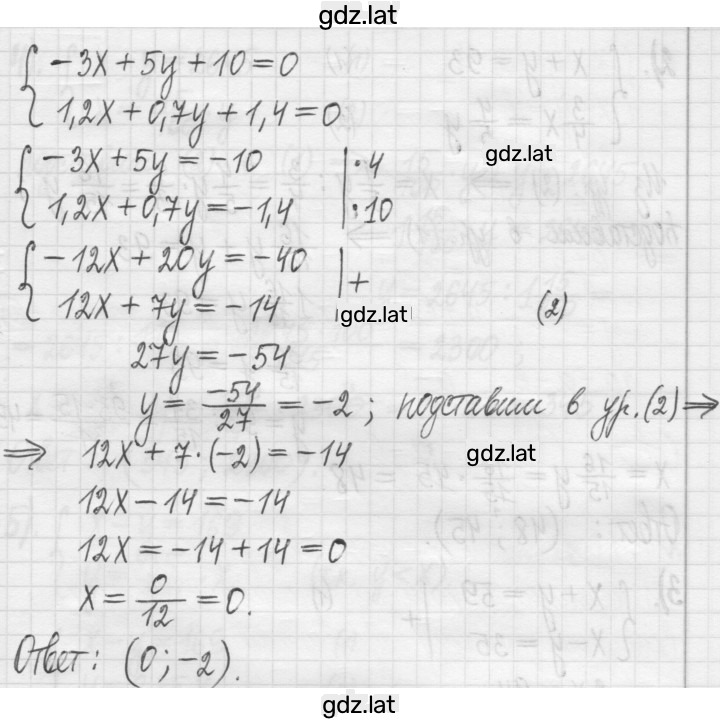 gdz.lat
{ -3x + 5y + 10 = 0
1,2x + 0,7y + 1,4 = 0
{ -3x + 5y = -10 | · 4
gdz.lat
1,2x + 0,7y = -1,4 | · 10
{ -12x + 20y = -40 | +
12x + 7y = -14 (2)
gdz.lat
27y = -54
y = -54/27 = -2 ; подставим в ур. (2) ⇒
⇒ 12x + 7 · (-2) = -14
gdz.lat
12x - 14 = -14
12x = -14 + 14 = 0
x = 0/12 = 0.
Ответ: (0; -2).
gdz.lat